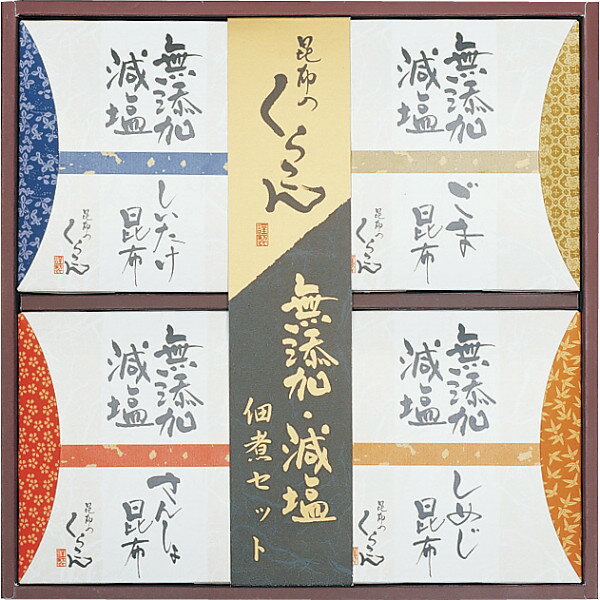 無添加
減塩
しいたけ
昆布
昆布の
くらこん
昆布の
くらこん
無添加・減塩
佃煮セット
無添加
減塩
ごま
昆布
昆布の
くらこん
無添加
減塩
さんしょ
昆布
昆布の
くらこん
無添加
減塩
しめじ
昆布
昆布の
くらこん